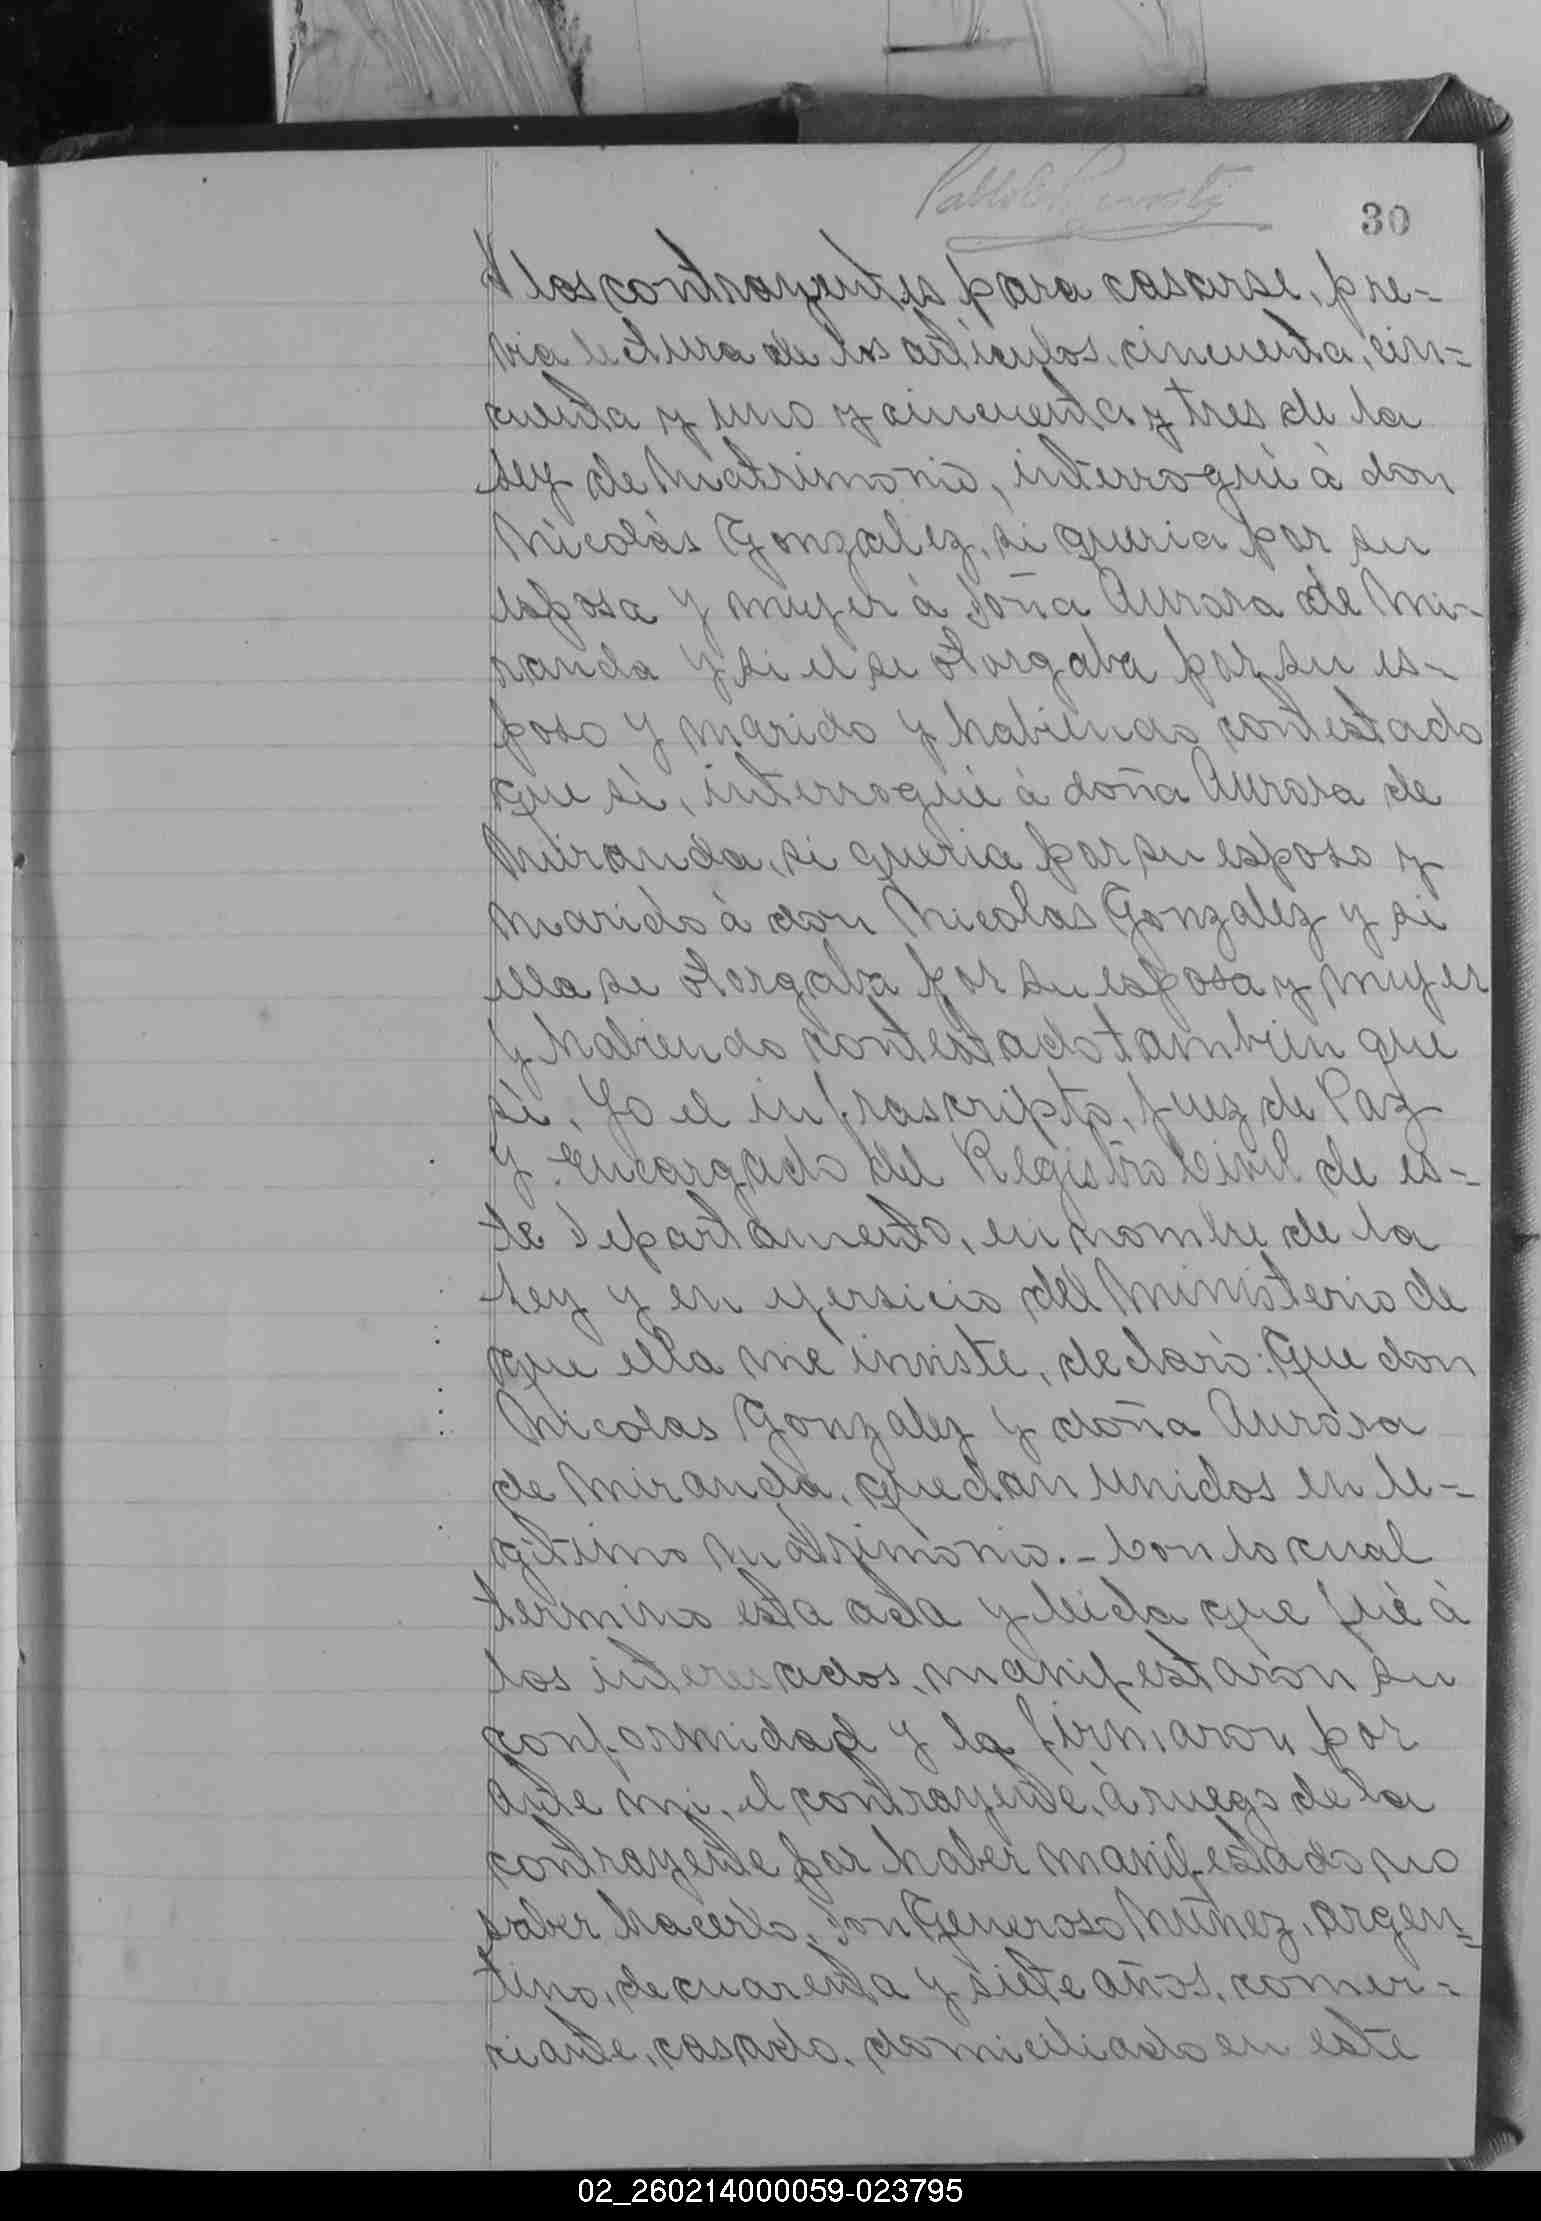 Pablo
30
á los contrayentes para casarse, pre-
via lectura de los artículos, cincuenta, cin-
cuenta y uno y cincuenta y tres de la
Ley de Matrimonio, interrogué á don
Nicolás Gonzalez, si queria por su
esposa y mujer á Doña Aurora de Mi-
randa y si el se otorgaba por su es-
poso y marido y habiendo contestado
que sí, interrogué á doña Aurora de
Miranda, si queria por su esposo y
marido á don Nicolas Gonzalez y si
ella se otorgaba por su esposa y mujer
y habiendo contestado tambien que
sí, Yo el infrascripto, Juez de Paz
y Encargado del Registro Civil de es-
te Departamento, en nombre de la
Ley y en ejersicio del Ministerio de
que ella me inviste, declaro: Que don
Nicolas Gonzalez y doña Aurora
de Miranda, quedan unidos en le-
gítimo matrimonio.- Con lo cual
termino esta acta y leida que fué á
los interesados, manifestaron su
conformidad y la firmaron por
ante mi, el contrayente, á ruego de la
contrayente por haber manifestado no
saber hacerlo, Don Generoso Nuñez, argen-
tino, de cuarenta y siete años, comer-
ciante, casado, domiciliado en este
02_260214000059-023795